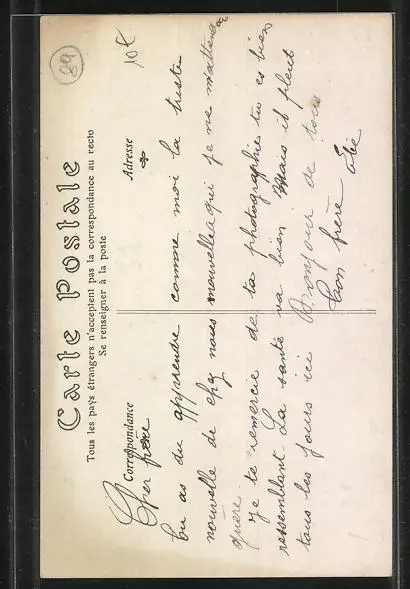 89
10€
Carte Postale
Tous les pays étrangers n'acceptent pas la correspondance au recto
Se renseigner à la poste
Correspondance
Adresse
Cher frère
tu as du apprendre comme moi la triste
nouvelle de chez nous nouvelle a qui je ne m'attendai
guere.
Je te remercie de ta photographie tu es bien
ressemblant. La santé va bien Mais il pleut
tous les jours ici Bonjour de tous
ton frère